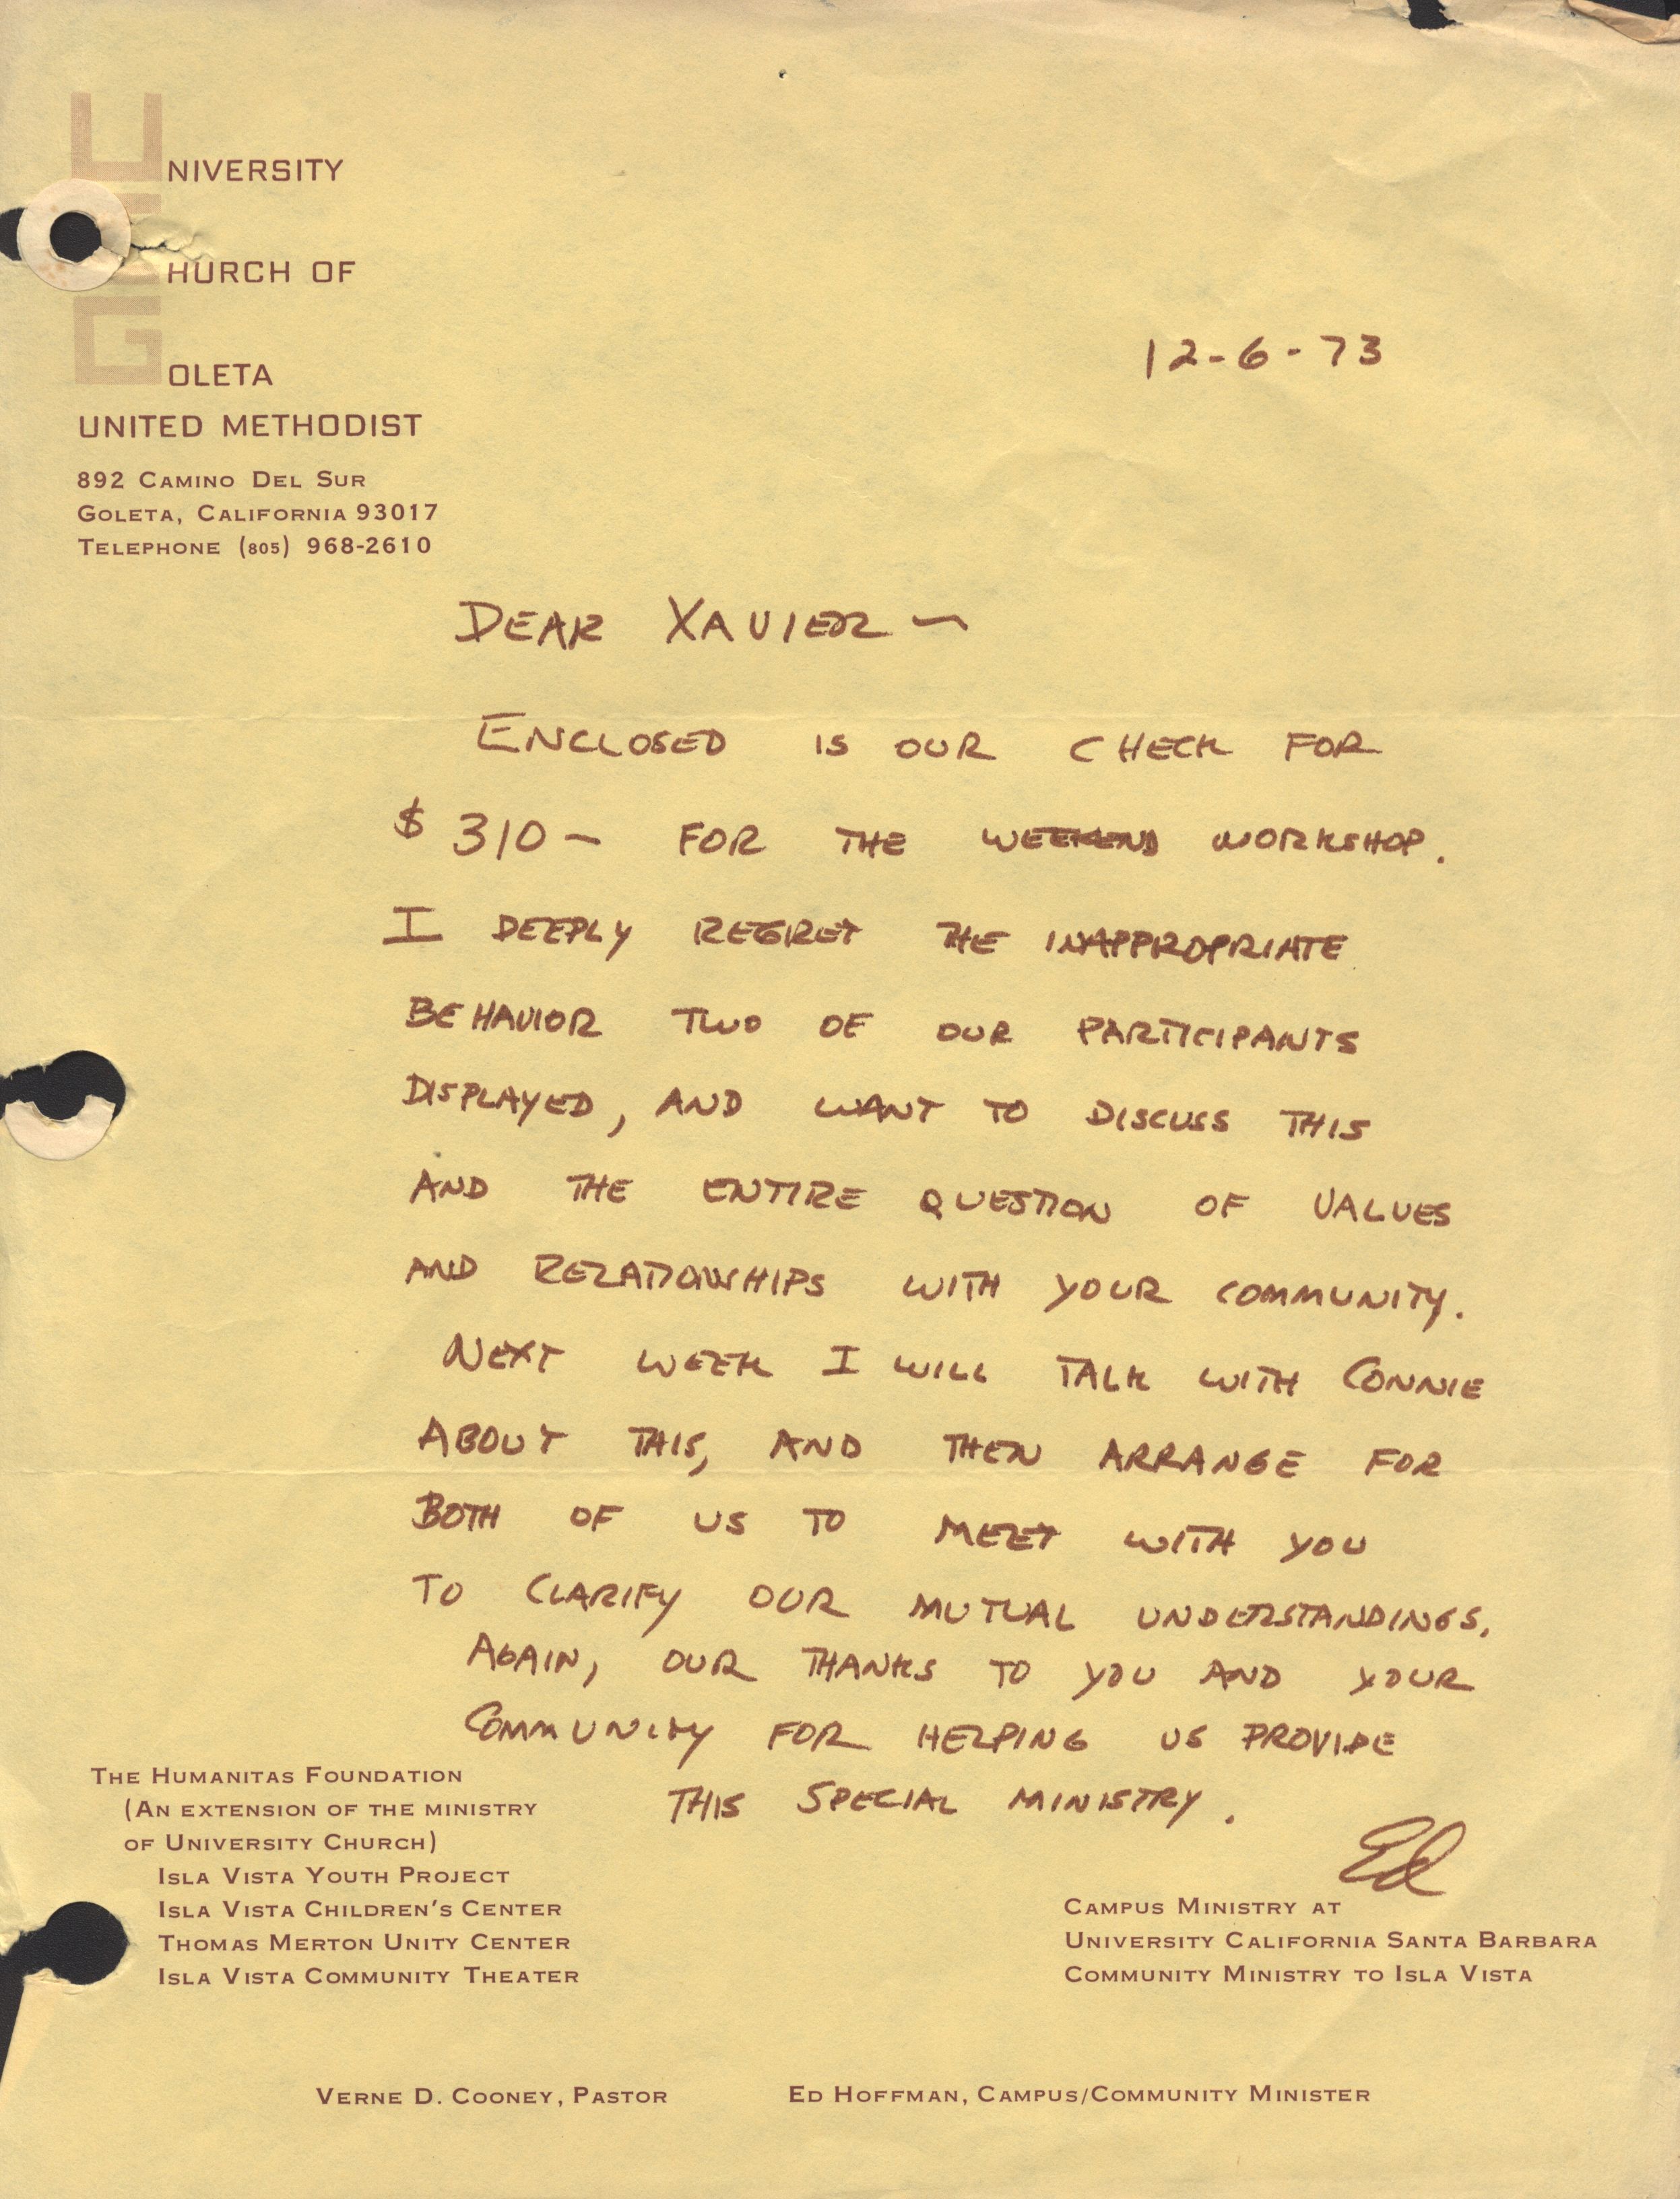 UNIVERSITY
CHURCH OF
GOLETA
UNITED METHODIST
892 CAMINO DEL SUR
GOLETA, CALIFORNIA 93017
TELEPHONE (805) 968-2610
12-6-73
DEAR XAVIER —
ENCLOSED IS OUR CHECK FOR
$ 310— FOR THE WEEKEND WORKSHOP.
I DEEPLY REGRET THE INAPPROPRIATE
BEHAVIOR TWO OF OUR PARTICIPANTS
DISPLAYED, AND WANT TO DISCUSS THIS
AND THE ENTIRE QUESTION OF VALUES
AND RELATIONSHIPS WITH YOUR COMMUNITY.
NEXT WEEK I WILL TALK WITH CONNIE
ABOUT THIS, AND THEN ARRANGE FOR
BOTH OF US TO MEET WITH YOU
TO CLARIFY OUR MUTUAL UNDERSTANDINGS.
AGAIN, OUR THANKS TO YOU AND YOUR
COMMUNITY FOR HELPING US PROVIDE
THIS SPECIAL MINISTRY.
Ed
THE HUMANITAS FOUNDATION
(AN EXTENSION OF THE MINISTRY
OF UNIVERSITY CHURCH)
ISLA VISTA YOUTH PROJECT
ISLA VISTA CHILDREN'S CENTER
THOMAS MERTON UNITY CENTER
ISLA VISTA COMMUNITY THEATER
CAMPUS MINISTRY AT
UNIVERSITY CALIFORNIA SANTA BARBARA
COMMUNITY MINISTRY TO ISLA VISTA
VERNE D. COONEY, PASTOR
ED HOFFMAN, CAMPUS/COMMUNITY MINISTER